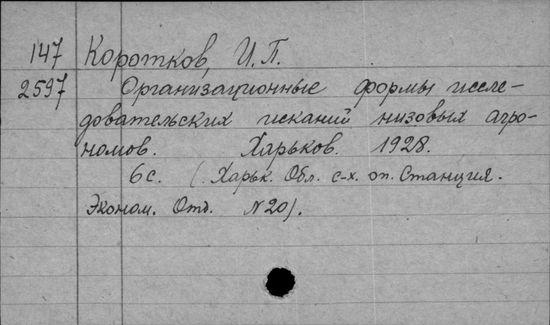 147 Коротков, И.П.
2597 Организационные формы иссле-
довательских исканий низовых агро-
номов. Харьков. 1928.
6с. (Харьк. Обл. с-х. оп. Станция.
Эконом. Отд. N20).